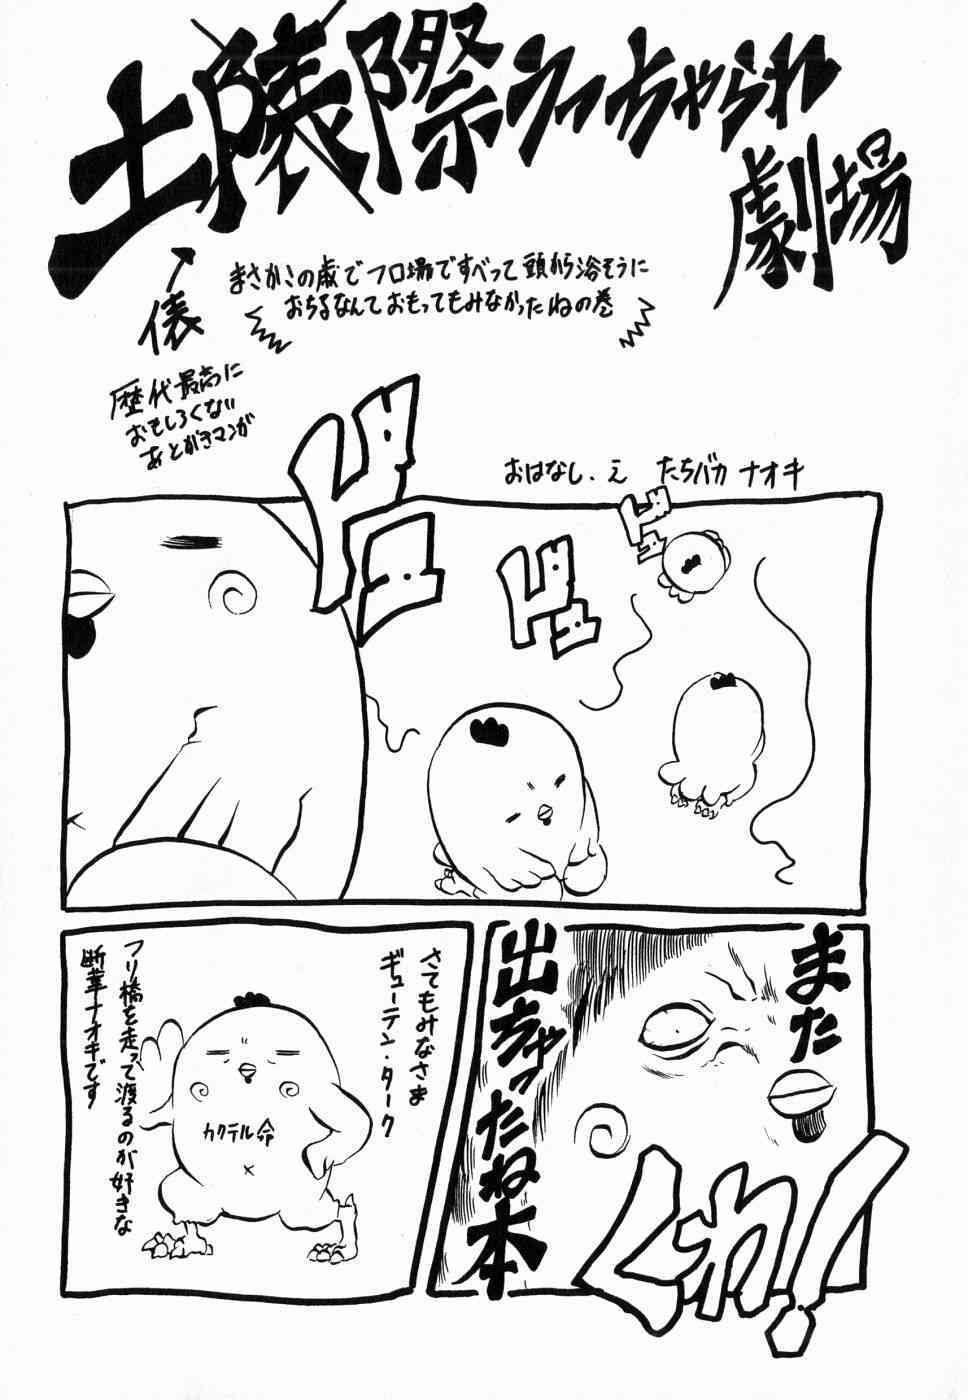 土俵際うっちゃられ
劇場
俵
まさかこの歳でフロ場ですべって頭から浴そうに
おちるなんておもってもみなかったねの巻
歴代最高に
おもしろくない
あとがきマンガ
おはなし.え たちバカ ナオキ
ドドドド
ドドド
ドド
また
出ちゃったね本
くわっ!
さてもみなさま
ギューテン・ターク
フリ橋を走って渡るのが好きな
断華ナオキです
カクテル命